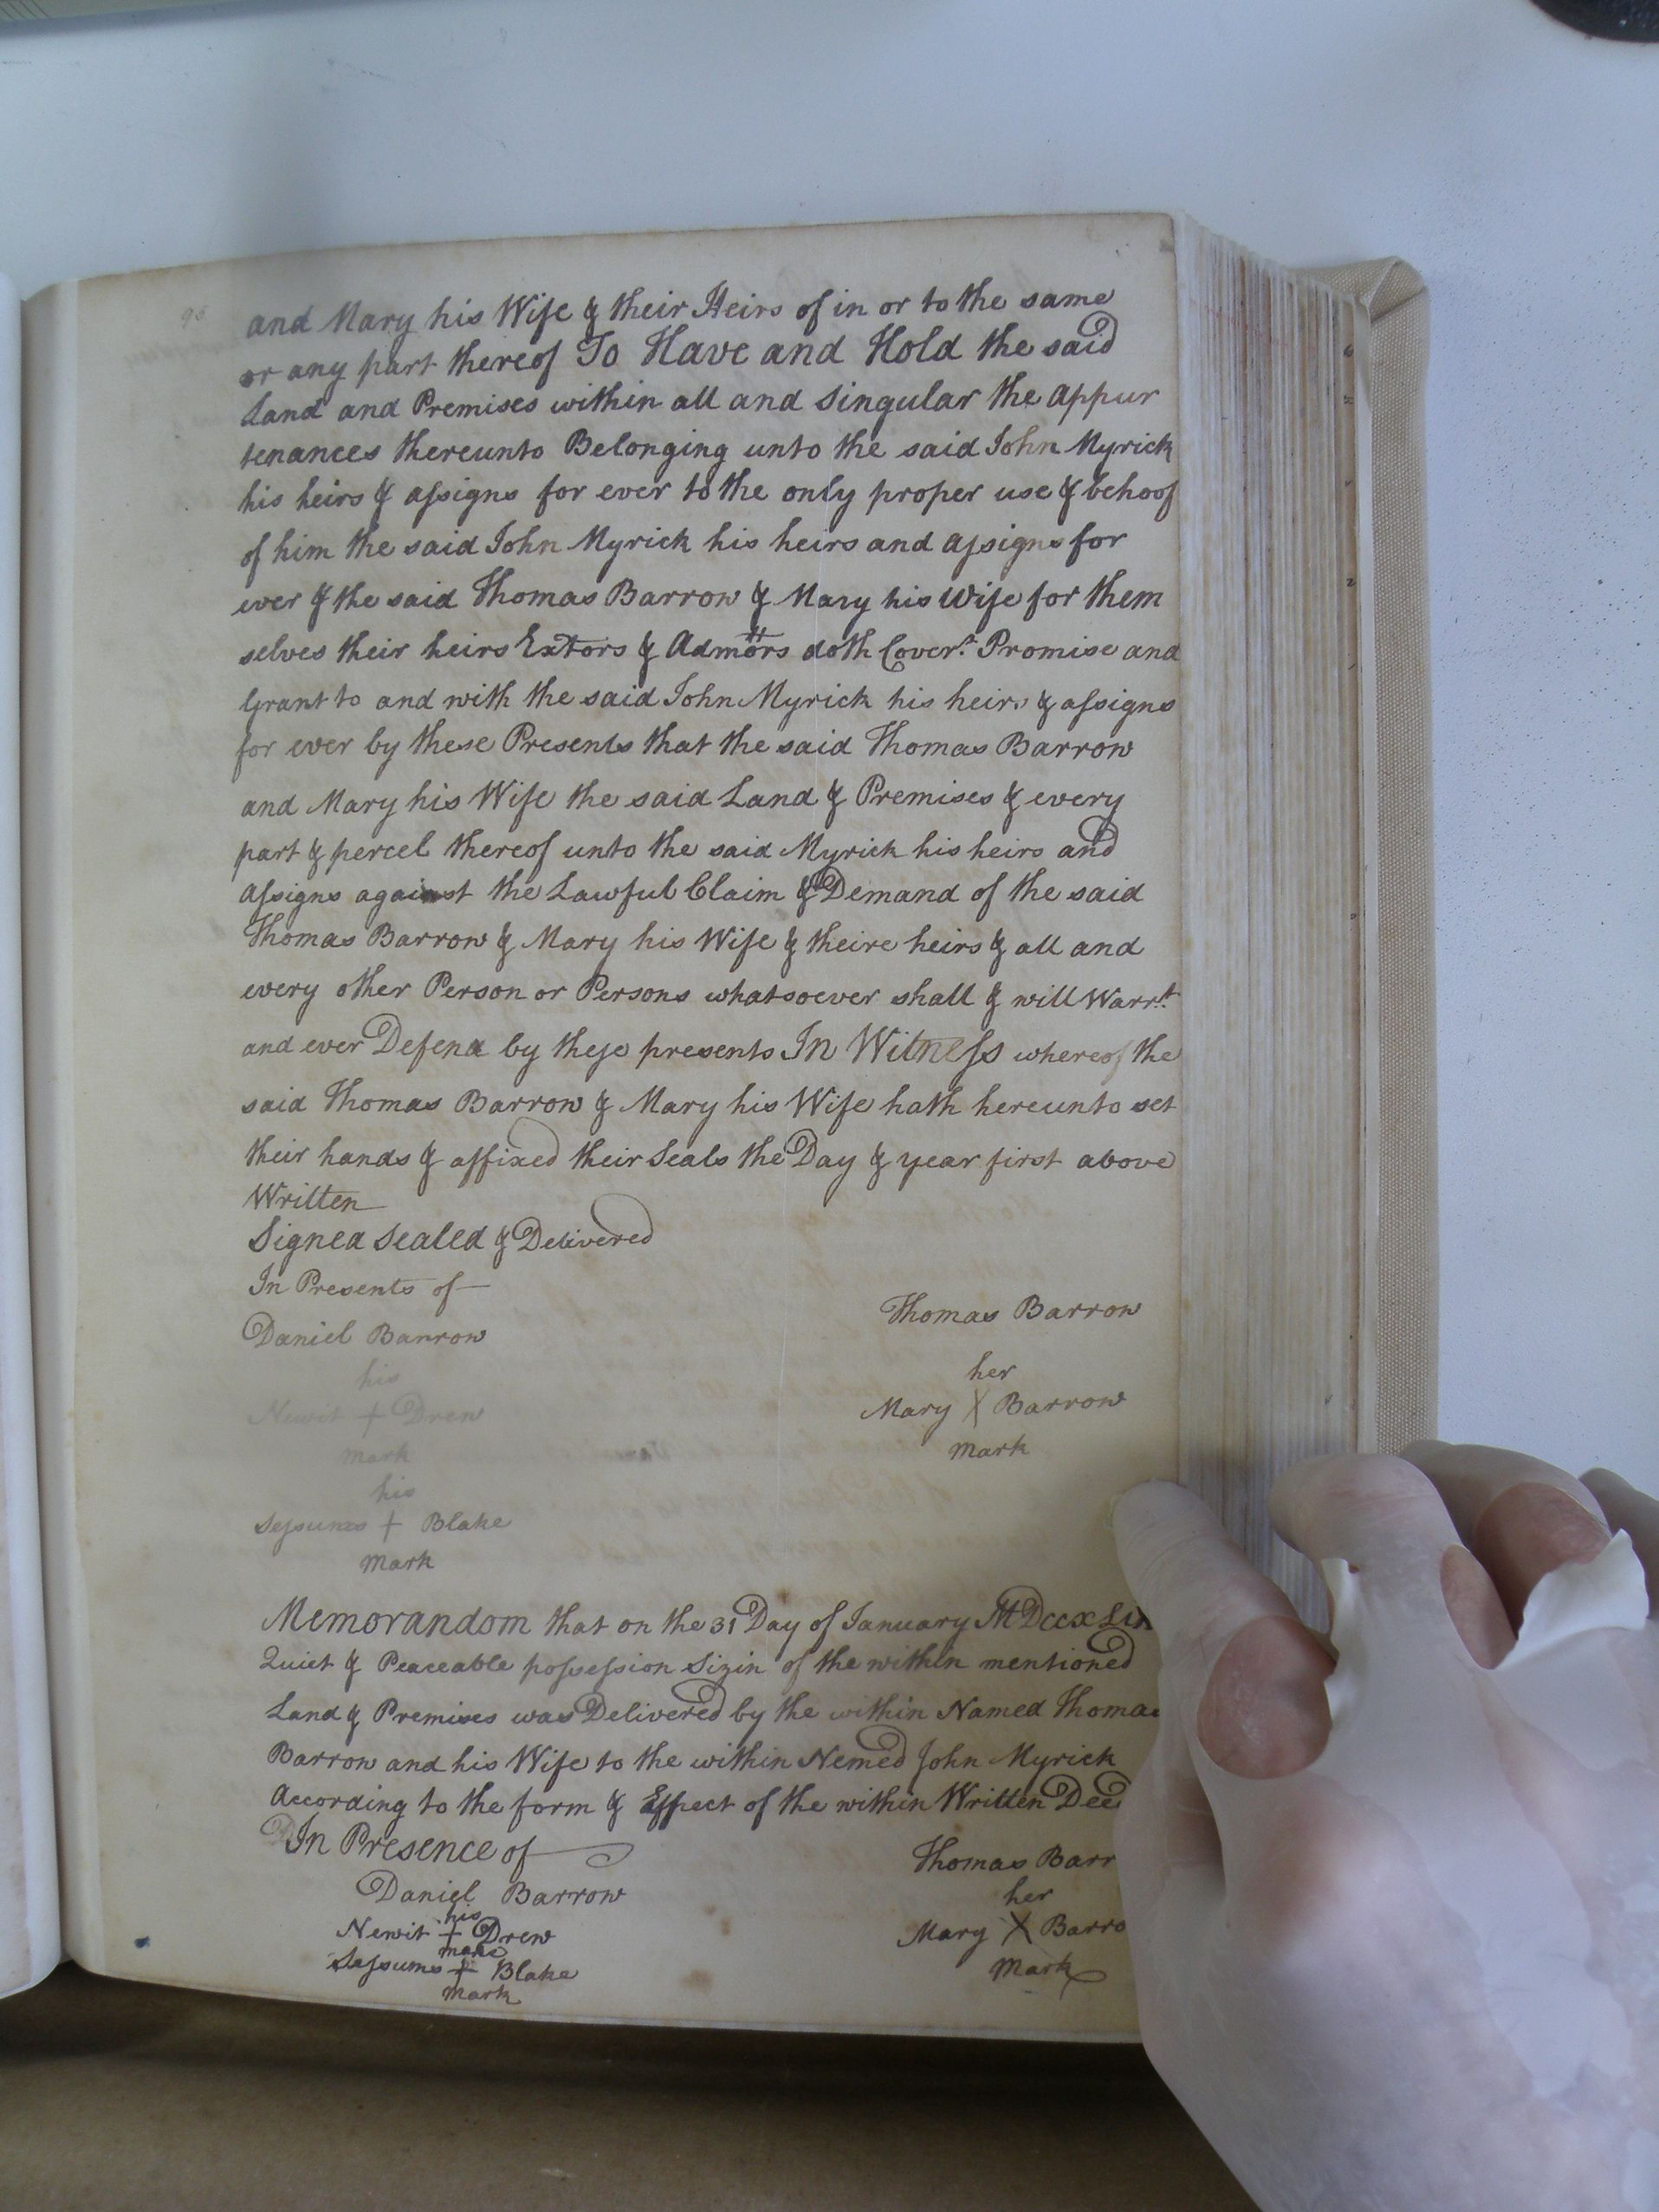 and Mary his Wife & their Heirs of in or to the same
or any part thereof To Have and Hold the said
Land and Premises within all and singular the appur
tenances thereunto Belonging unto the said John Myrick
his heirs & assigns for ever to the only proper use & behoof
of him the said John Myrick his heirs and assigns for
ever & the said Thomas Barrow & Mary his Wife for them
selves their heirs Extors & Admors doth Covert. Promise and
Grant to and with the said John Myrick his heirs & assigns
for ever by these Presents that the said Thomas Barrow
and Mary his Wife the said Land & Premises & every
part & percel thereof unto the said Myrick his heirs and
Assigns against the Lawful Claim & Demand of the said
Thomas Barrow & Mary his Wife & theire heirs & all and
every other Person or Persons whatsoever shall & will Warrt.
and ever Defend by these presents In Witness whereof the
said Thomas Barrow & Mary his Wife hath hereunto set
their hands & affixed their Seals the Day & year first above
Written
Signed Sealed & Delivered
In Presents of
Thomas Barrow
Daniel Barrow
her
his
Mary X Barrow
Newit + Drew
mark
mark
his
Sessums + Blake
mark
Memorandom that on the 31 Day of January
Quiet & Peaceable possession Sizin of the within mentioned
Land & Premises was Delivered by the within Named Thomas
Barrow and his Wife to the within Nemed John Myrick
According to the form & Effect of the within Written
In Presence of
Thomas Barr
Daniel Barrow
her
his
Newit + Drew
Mary X Barro
mark
Sessums + Blake
mark
mark